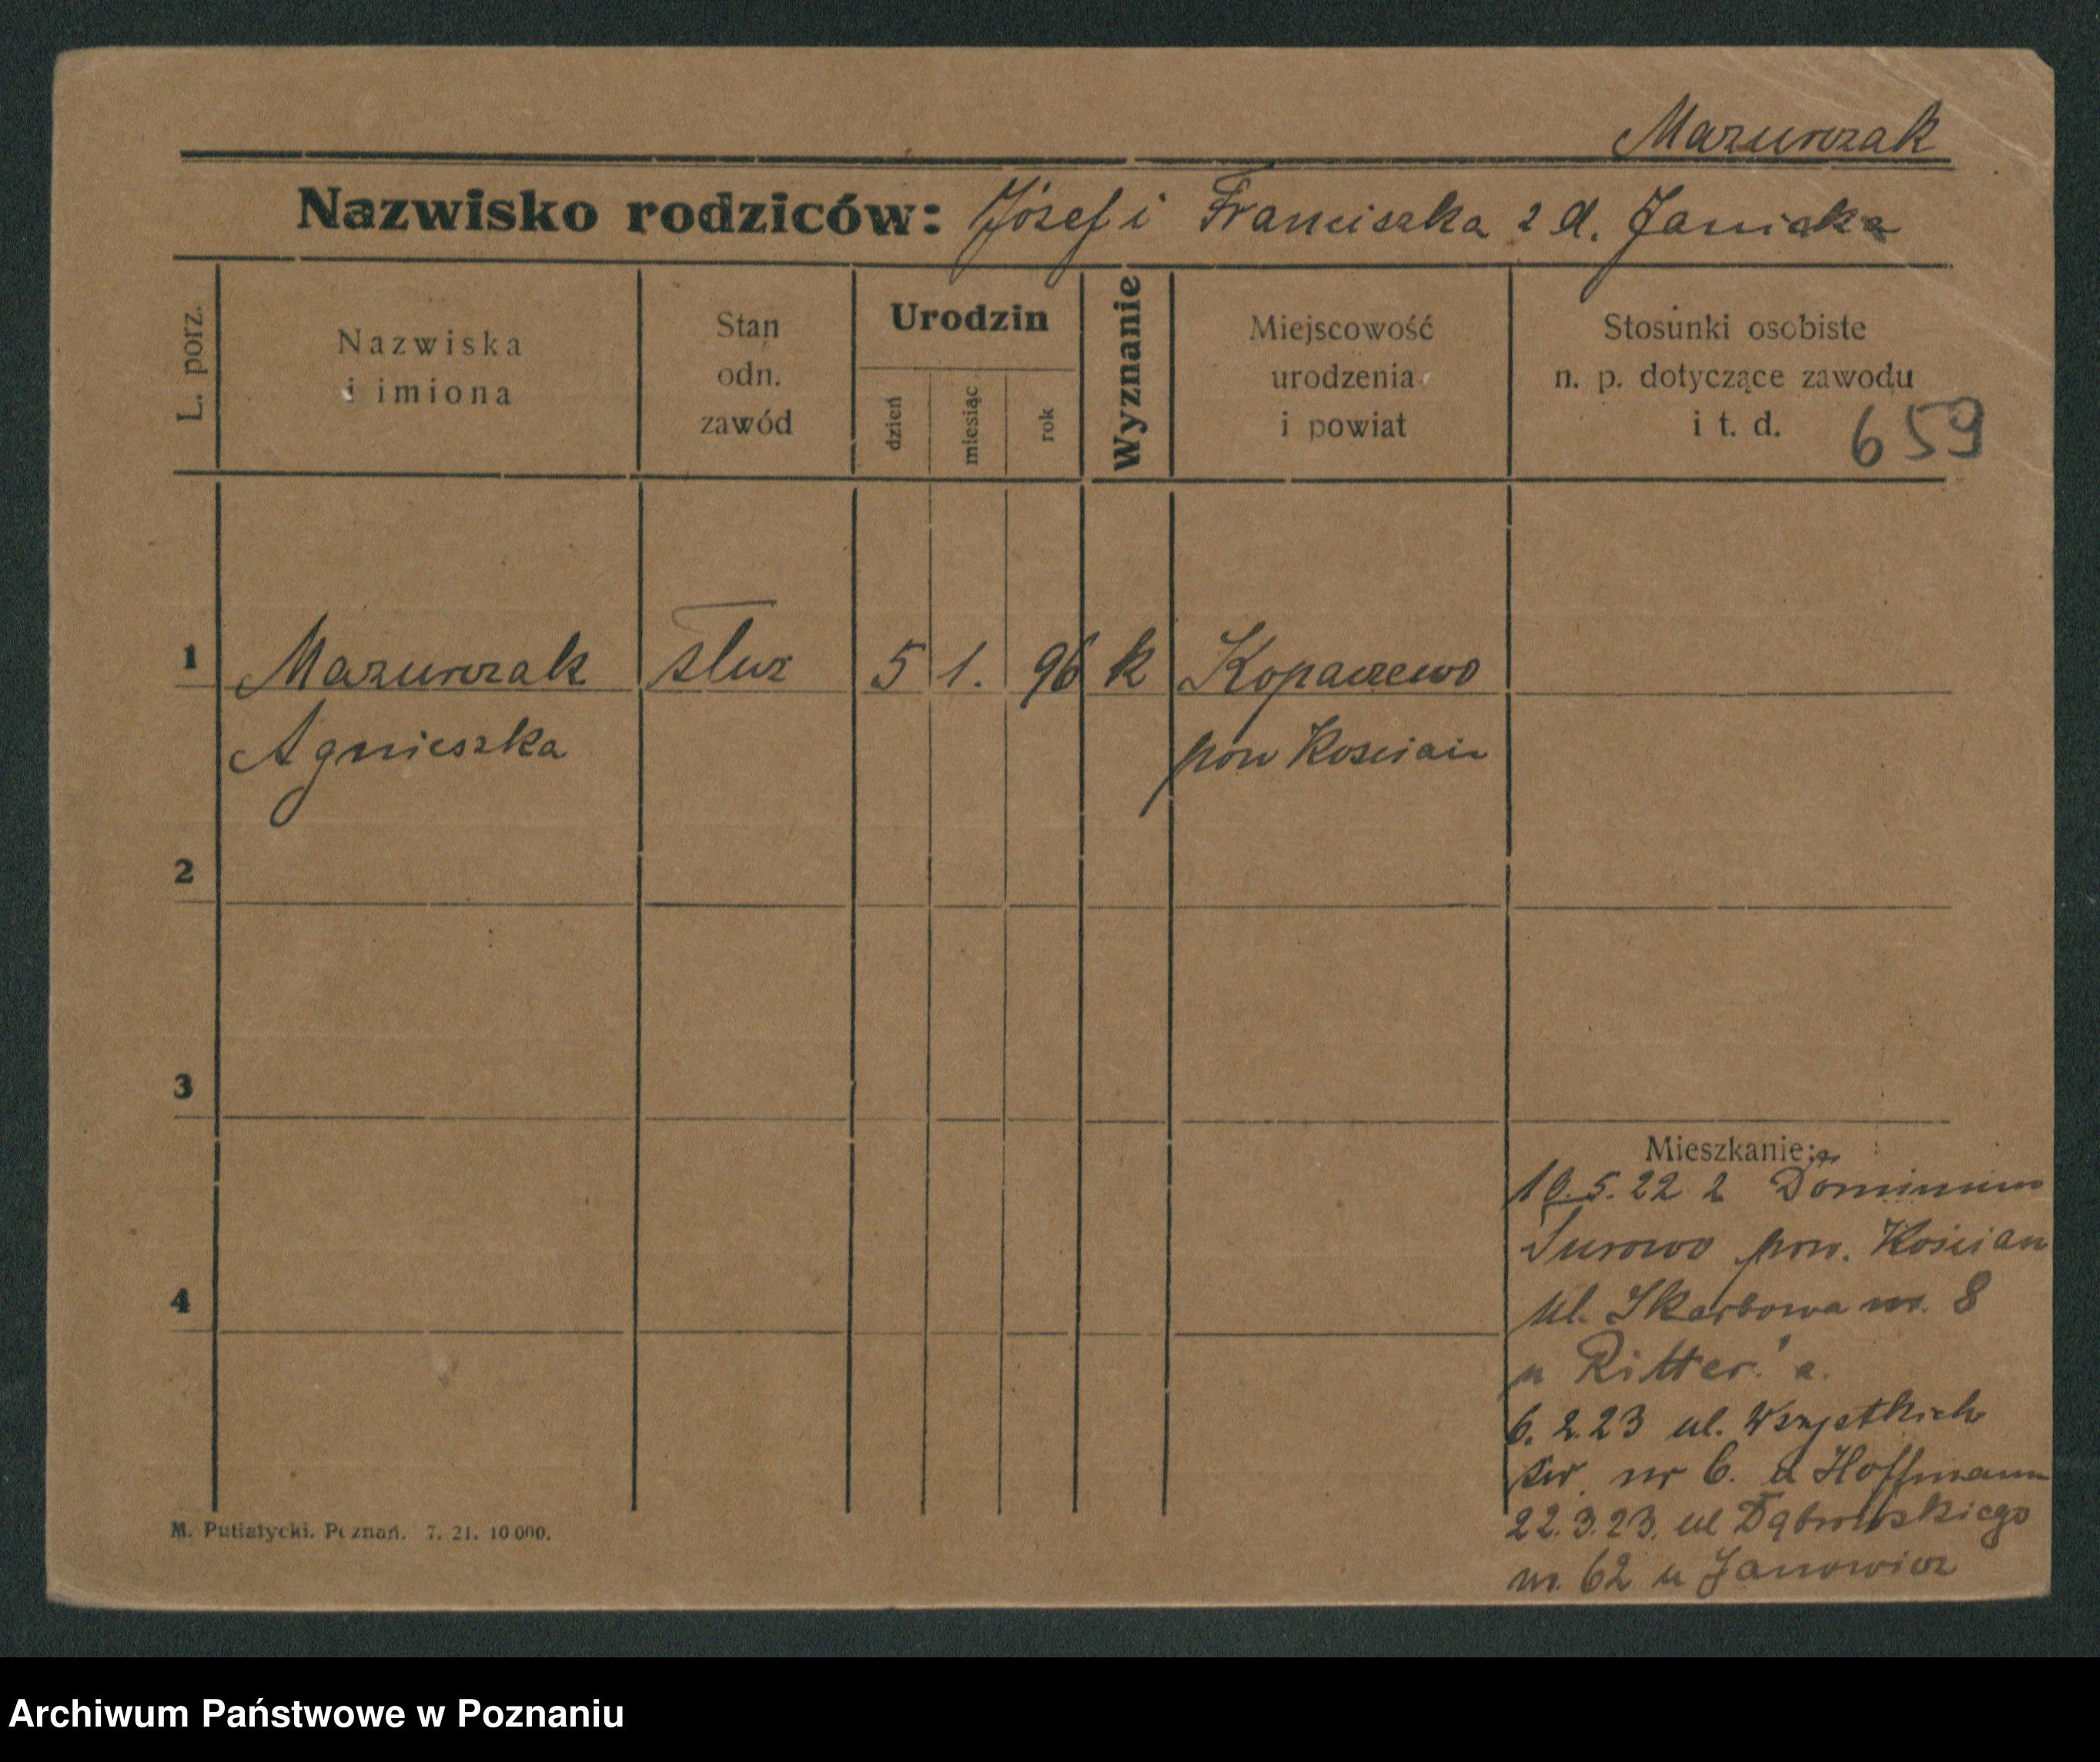 Mazurczak
Nazwisko rodziców: Józef i Franciszka z d. Janicka
L. porz.
Nazwiska
i imiona
Stan
odn.
zawód
Urodzin
dzień
miesiąc
rok
Wyznanie
Miejscowość
urodzenia
i powiat
Stosunki osobiste
n. p. dotyczące zawodu
i t. d.
659
1 Mazurczak służ 5 1. 96 k Kopaszewo
Agnieszka pow Kościan
2
3
4
Mieszkanie:
10.5.22 z Dominium
pow. Kościan
ul. Skarbowa nr. 8
u Ritter'a.
6.2.23 ul. Wszystkich
Św. nr 6. u Hoffmann
22.3.23. ul Dąbrowskiego
nr. 62 u Janowicz
M. Putiatycki. Poznań. 7. 21. 10 000.
Archiwum Państwowe w Poznaniu